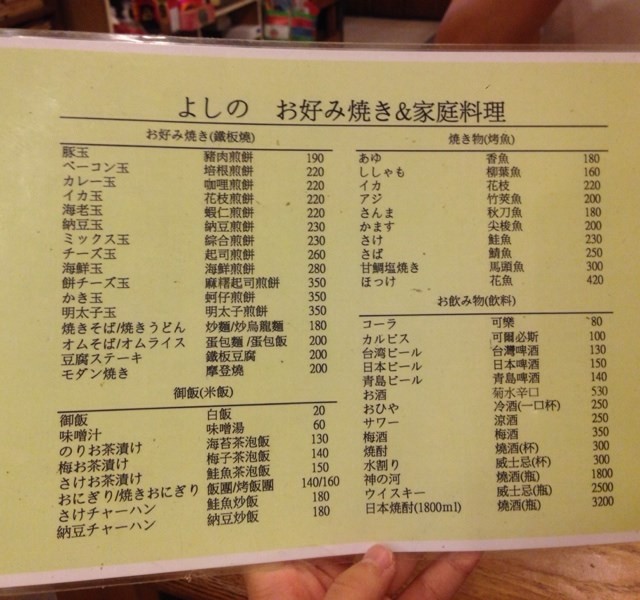 よしの お好み焼き&家庭料理
お好み焼き(鐵板燒)
豚玉 豬肉煎餅 190
ベーコン玉 培根煎餅 220
カレー玉 咖哩煎餅 220
イカ玉 花枝煎餅 220
海老玉 蝦仁煎餅 220
納豆玉 納豆煎餅 230
ミックス玉 綜合煎餅 230
チーズ玉 起司煎餅 260
海鮮玉 海鮮煎餅 280
餅チーズ玉 麻糬起司煎餅 350
かき玉 蚵仔煎餅 350
明太子玉 明太子煎餅 350
焼きそば/焼きうどん 炒麵/炒烏龍麵 180
オムそば/オムライス 蛋包麵/蛋包飯 200
豆腐ステーキ 鐵板豆腐 200
モダン焼き 摩登燒 200
御飯(米飯)
御飯 白飯 20
味噌汁 味噌湯 60
のりお茶漬け 海苔茶泡飯 130
梅お茶漬け 梅子茶泡飯 140
さけお茶漬け 鮭魚茶泡飯 150
おにぎり/焼きおにぎり 飯團/烤飯團 140/160
さけチャーハン 鮭魚炒飯 180
納豆チャーハン 納豆炒飯 180
焼き物(烤魚)
あゆ 香魚 180
ししゃも 柳葉魚 160
イカ 花枝 220
アジ 竹筴魚 200
さんま 秋刀魚 180
かます 尖梭魚 200
さけ 鮭魚 230
さば 鯖魚 250
甘鯛塩焼き 馬頭魚 300
ほっけ 花魚 420
お飲み物(飲料)
コーラ 可樂 80
カルピス 可爾必斯 100
台湾ビール 台灣啤酒 130
日本ビール 日本啤酒 150
青島ビール 青島啤酒 140
お酒 菊水辛口 530
おひや 冷酒(一口杯) 250
サワー 涼酒 250
梅酒 梅酒 350
焼酎 燒酒(杯) 300
水割り 威士忌(杯) 300
神の河 燒酒(瓶) 1800
ウイスキー 威士忌(瓶) 2500
日本焼酎(1800ml) 燒酒(瓶) 3200